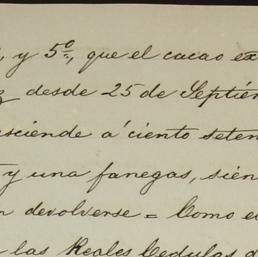 , y 5º, que el cacao ex
desde 25 de Septiem
asciende á ciento seten
y una fanegas, sien
devolverse = Como e
las Reales Cedulas d